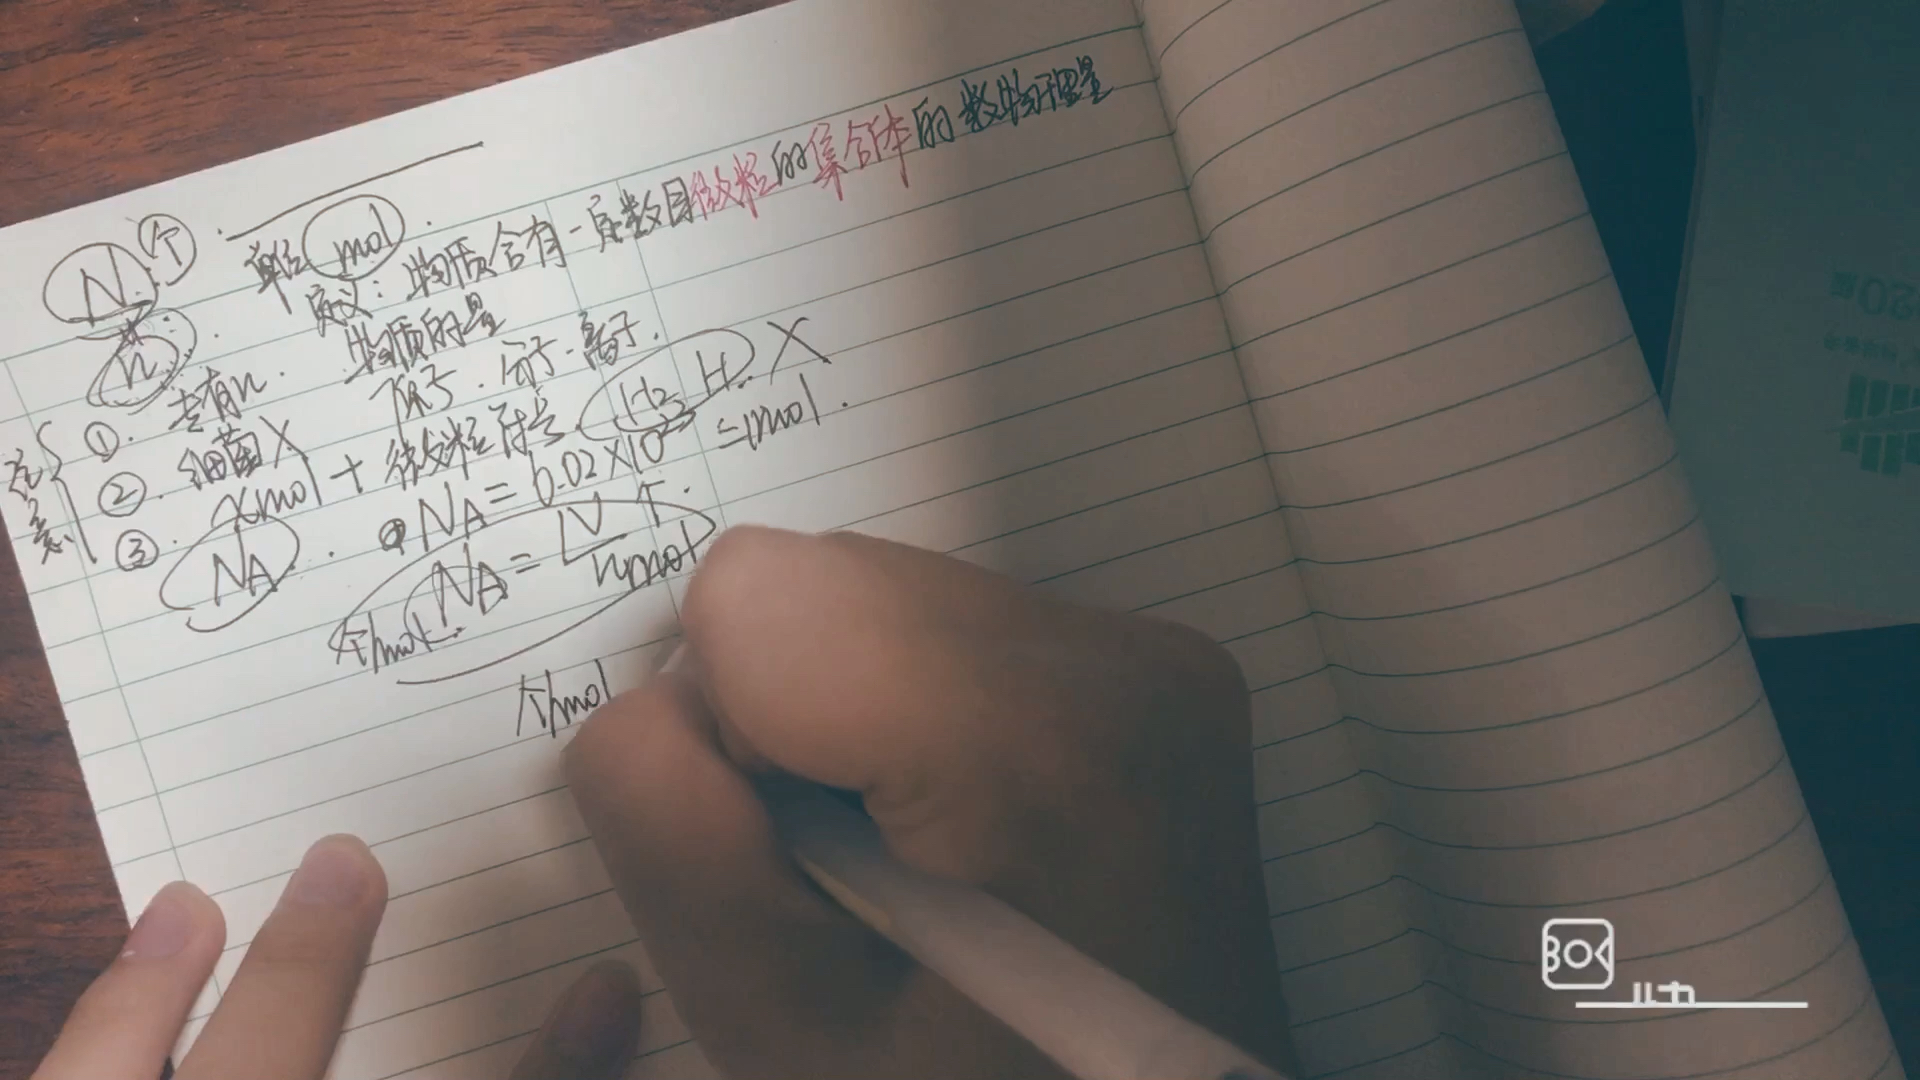 N 个
单位 mol
定义: 物质含有一定数目微粒的集合体的数物理量
n
物质的量
注意
①. 专有n. 原子. 分子. 离子.
②. 细菌X
③. xmol + 微粒符号. H₂ H. X
NA. NA = 6.02×10²³ =1mol.
NA = N个 / nmol
个/mol.
个/mol
BOX